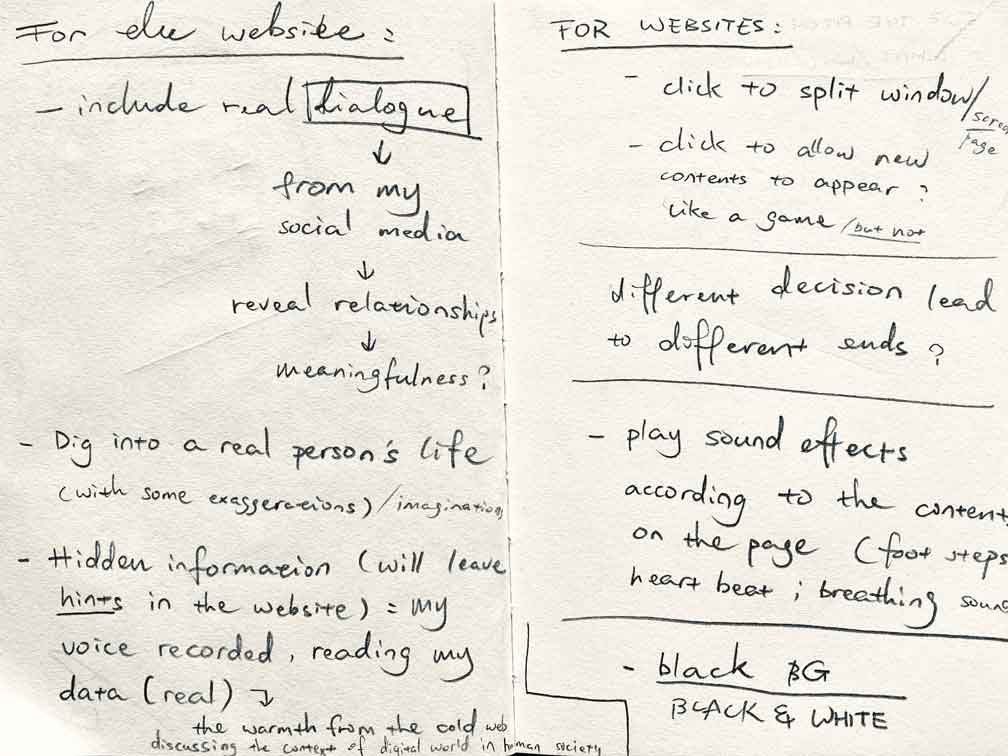 For the website :
- include real dialogue
↓
from my
social media
↓
reveal relationships
↓
meaningfulness?
- Dig into a real person's life
(with some exaggerations) / imaginations
- Hidden information (will leave
hints in the website) = my
voice recorded, reading my
data (real) ↴
the warmth from the cold web
discussing the context of digital world in human society
FOR WEBSITES :
- click to split window/
screen
Page
- click to allow new
contents to appear ?
like a game / but not
different decision lead
to different ends ?
- play sound effects
according to the content
on the page (foot steps
heart beat ; breathing sound
- black BG
BLACK & WHITE